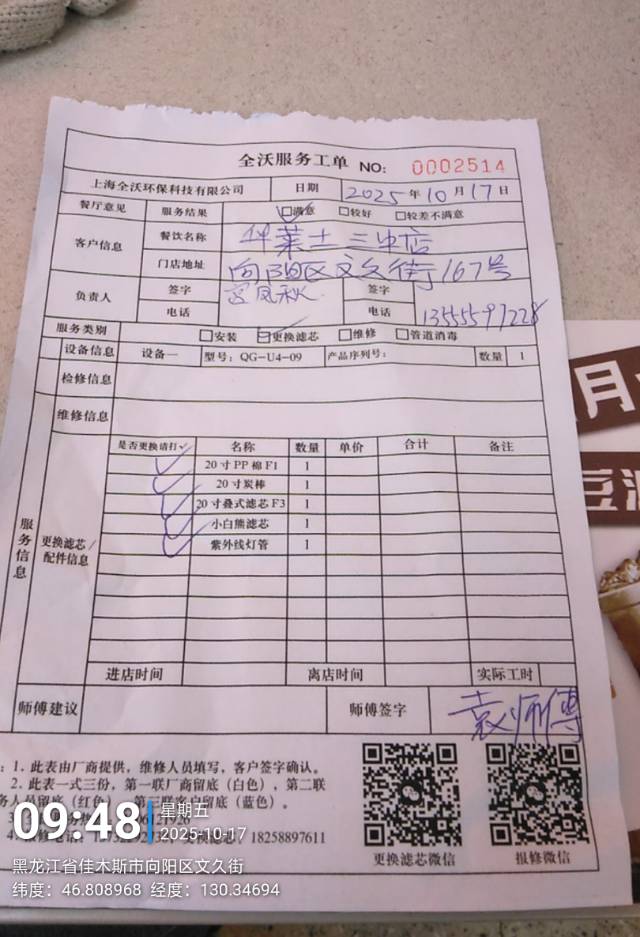 全沃服务工单 NO: 0002514
上海全沃环保科技有限公司 日期 2025年10月17日
餐厅意见 服务结果 ☑满意 □较好 □较差不满意
客户信息 餐饮名称 华莱士三中店
门店地址 向阳区文久街167号
负责人 签字 宫凤秋 签字
电话 电话 13555597228
服务类别 □安装 ☑更换滤芯 □维修 □管道消毒
设备信息 设备一 型号: QG-U4-09 产品序列号: 数量 1
检修信息
维修信息
服务信息
更换滤芯/
配件信息
是否更换请打✓ 名称 数量 单价 合计 备注
✓ 20寸PP棉F1 1
✓ 20寸炭棒 1
✓ 20寸叠式滤芯F3 1
✓ 小白熊滤芯 1
✓ 紫外线灯管 1
进店时间 离店时间 实际工时
师傅建议 师傅签字 袁师傅
: 1、此表由厂商提供，维修人员填写，客户签字确认。
2、此表一式三份，第一联厂商留底（白色），第二联
务人员留底（红色），第三联客户留底（蓝色）。
18258897611
更换滤芯微信 报修微信
09:48 星期五
2025-10-17
黑龙江省佳木斯市向阳区文久街
纬度: 46.808968 经度: 130.34694
月
豆